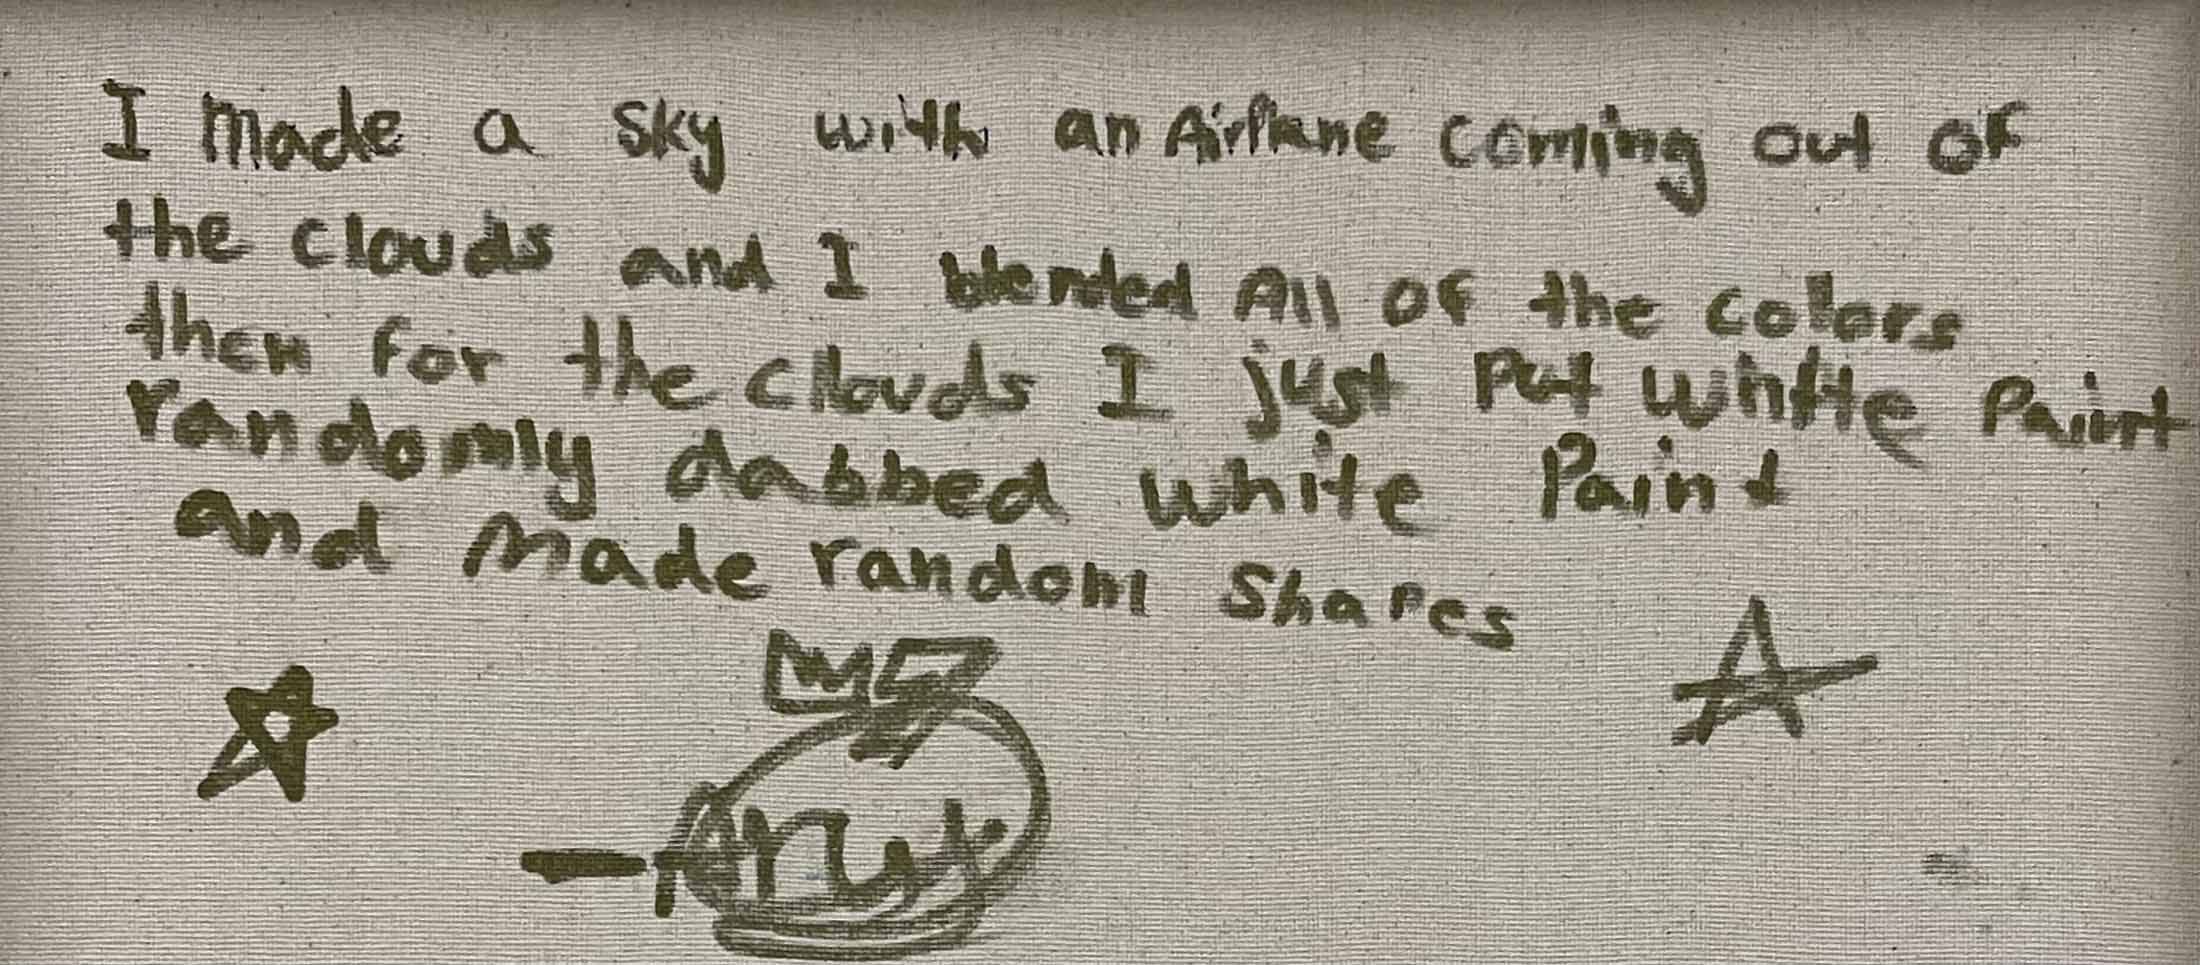 I made a sky with an Airplane coming out of
the clouds and I blended All of the colors
then for the clouds I just Put white Paint
randomly dabbed white Paint
and made random Shapes